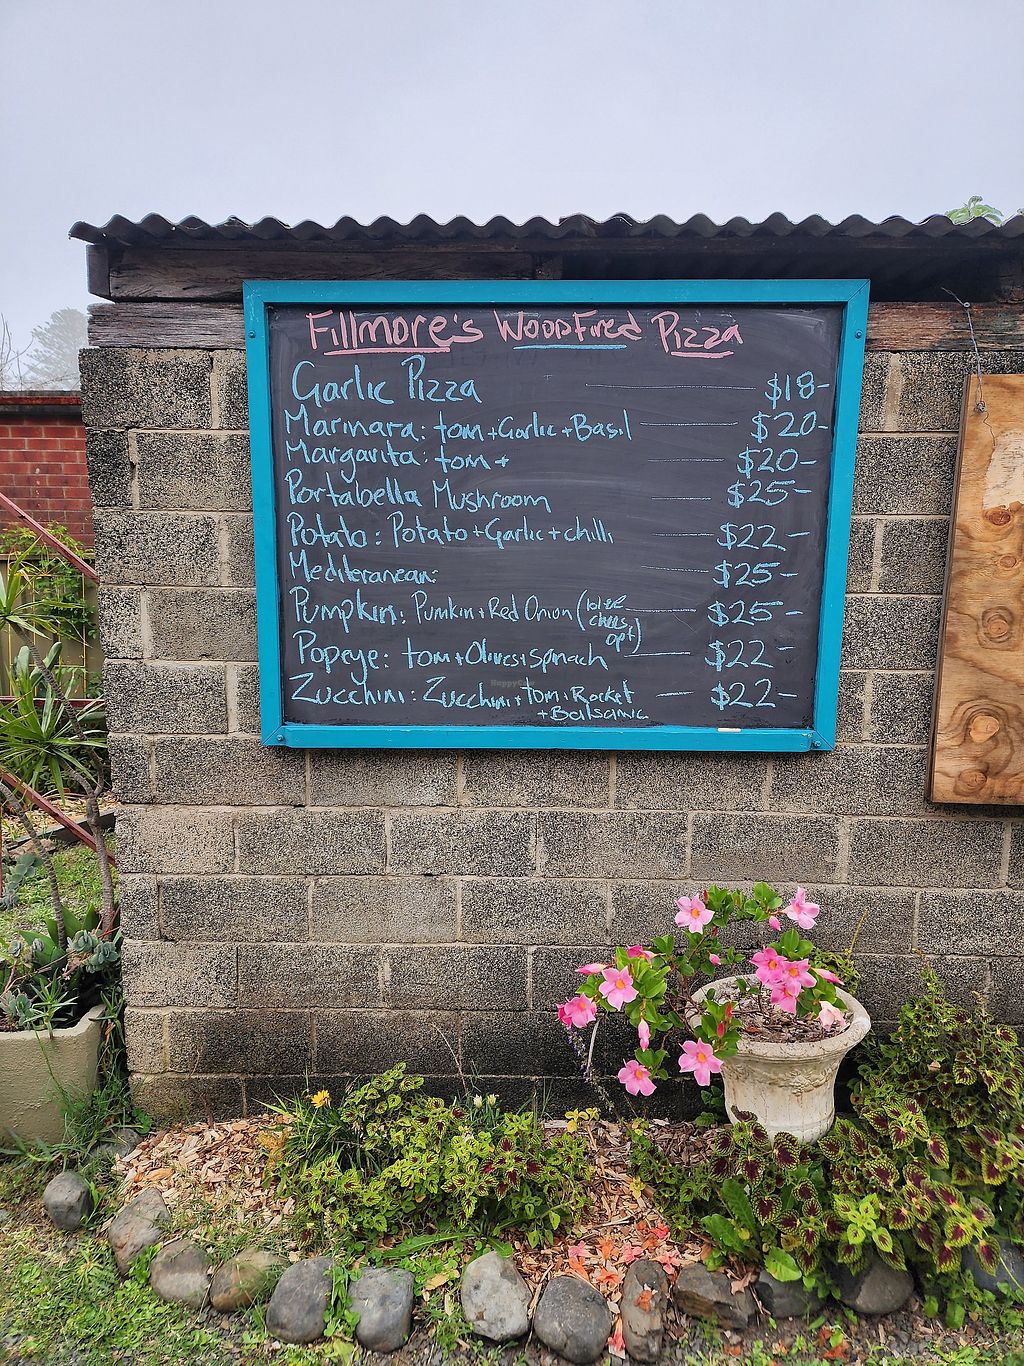 Fillmore's WoodFired Pizza
Garlic Pizza $18-
Marinara: tom+Garlic+Basil $20-
Margarita: tom+ $20-
Portabella Mushroom $25-
Potato: Potato+Garlic+chilli $22-
Mediteranean: $25-
Pumpkin: Pumkin+Red Onion ( $25-
opt)
Popeye: tom+Olives+Spinach $22-
Zucchini: Zucchini+tom+Rocket $22-
+Balsamic
HappyCow